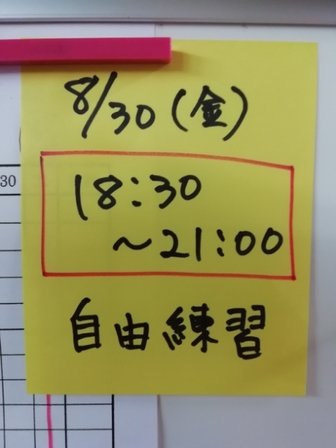 8/30(金)
18:30
~21:00
自由練習
30